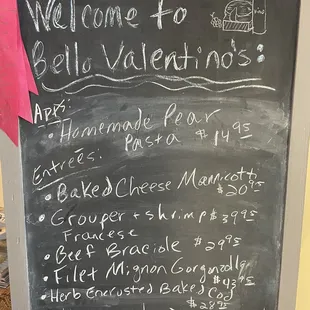 Welcome to
Bello Valentino's:
Apps:
• Homemade Pear
Pasta $14.95
Entrées:
• Baked Cheese Mannicotti
$20.95
• Grouper + shrimp $39.95
Francese
• Beef Braciole $29.95
• Filet Mignon Gorgonzolla
$43.95
• Herb Encrusted Baked Cod
$28.95